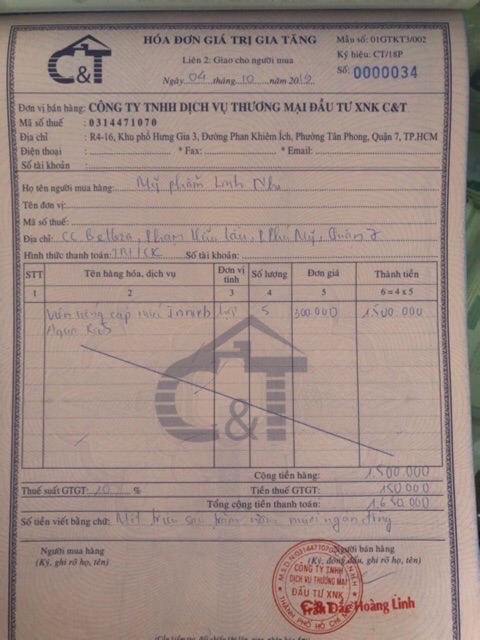 HÓA ĐƠN GIÁ TRỊ GIA TĂNG
Mẫu số: 01GTKT3/002
Liên 2: Giao cho người mua
Ký hiệu: CT/18P
Ngày 04 tháng 10 năm 2019
Số: 0000034
C&T
Đơn vị bán hàng: CÔNG TY TNHH DỊCH VỤ THƯƠNG MẠI ĐẦU TƯ XNK C&T
Mã số thuế : 0314471070
Địa chỉ : R4-16, Khu phố Hưng Gia 3, Đường Phan Khiêm Ích, Phường Tân Phong, Quận 7, TP.HCM
Điện thoại : * Fax: * Email:
Số tài khoản :
Họ tên người mua hàng: Mỹ phẩm Linh Nhi
Tên đơn vị:
Mã số thuế:
Địa chỉ: CC Belleza, Phạm Hữu Lầu, Phú Mỹ, Quận 7
Hình thức thanh toán: TM/CK Số tài khoản:
STT Tên hàng hóa, dịch vụ Đơn vị tính Số lượng Đơn giá Thành tiền
1 2 3 4 5 6 = 4 x 5
cấp 5 300.000 1.500.000
C&T
Cộng tiền hàng: 1.500.000
Thuế suất GTGT: 10 % Tiền thuế GTGT: 150.000
Tổng cộng tiền thanh toán: 1.650.000
Số tiền viết bằng chữ: Một triệu sáu trăm năm mươi ngàn đồng
Người mua hàng Người bán hàng
(Ký, ghi rõ họ, tên) (Ký, đóng dấu, ghi rõ họ, tên)
M.S.D.N:0314471070
CÔNG TY TNHH
DỊCH VỤ THƯƠNG MẠI
ĐẦU TƯ XNK
C&T
THÀNH PHỐ HỒ CHÍ MINH
Trần Đắc Hoàng Linh